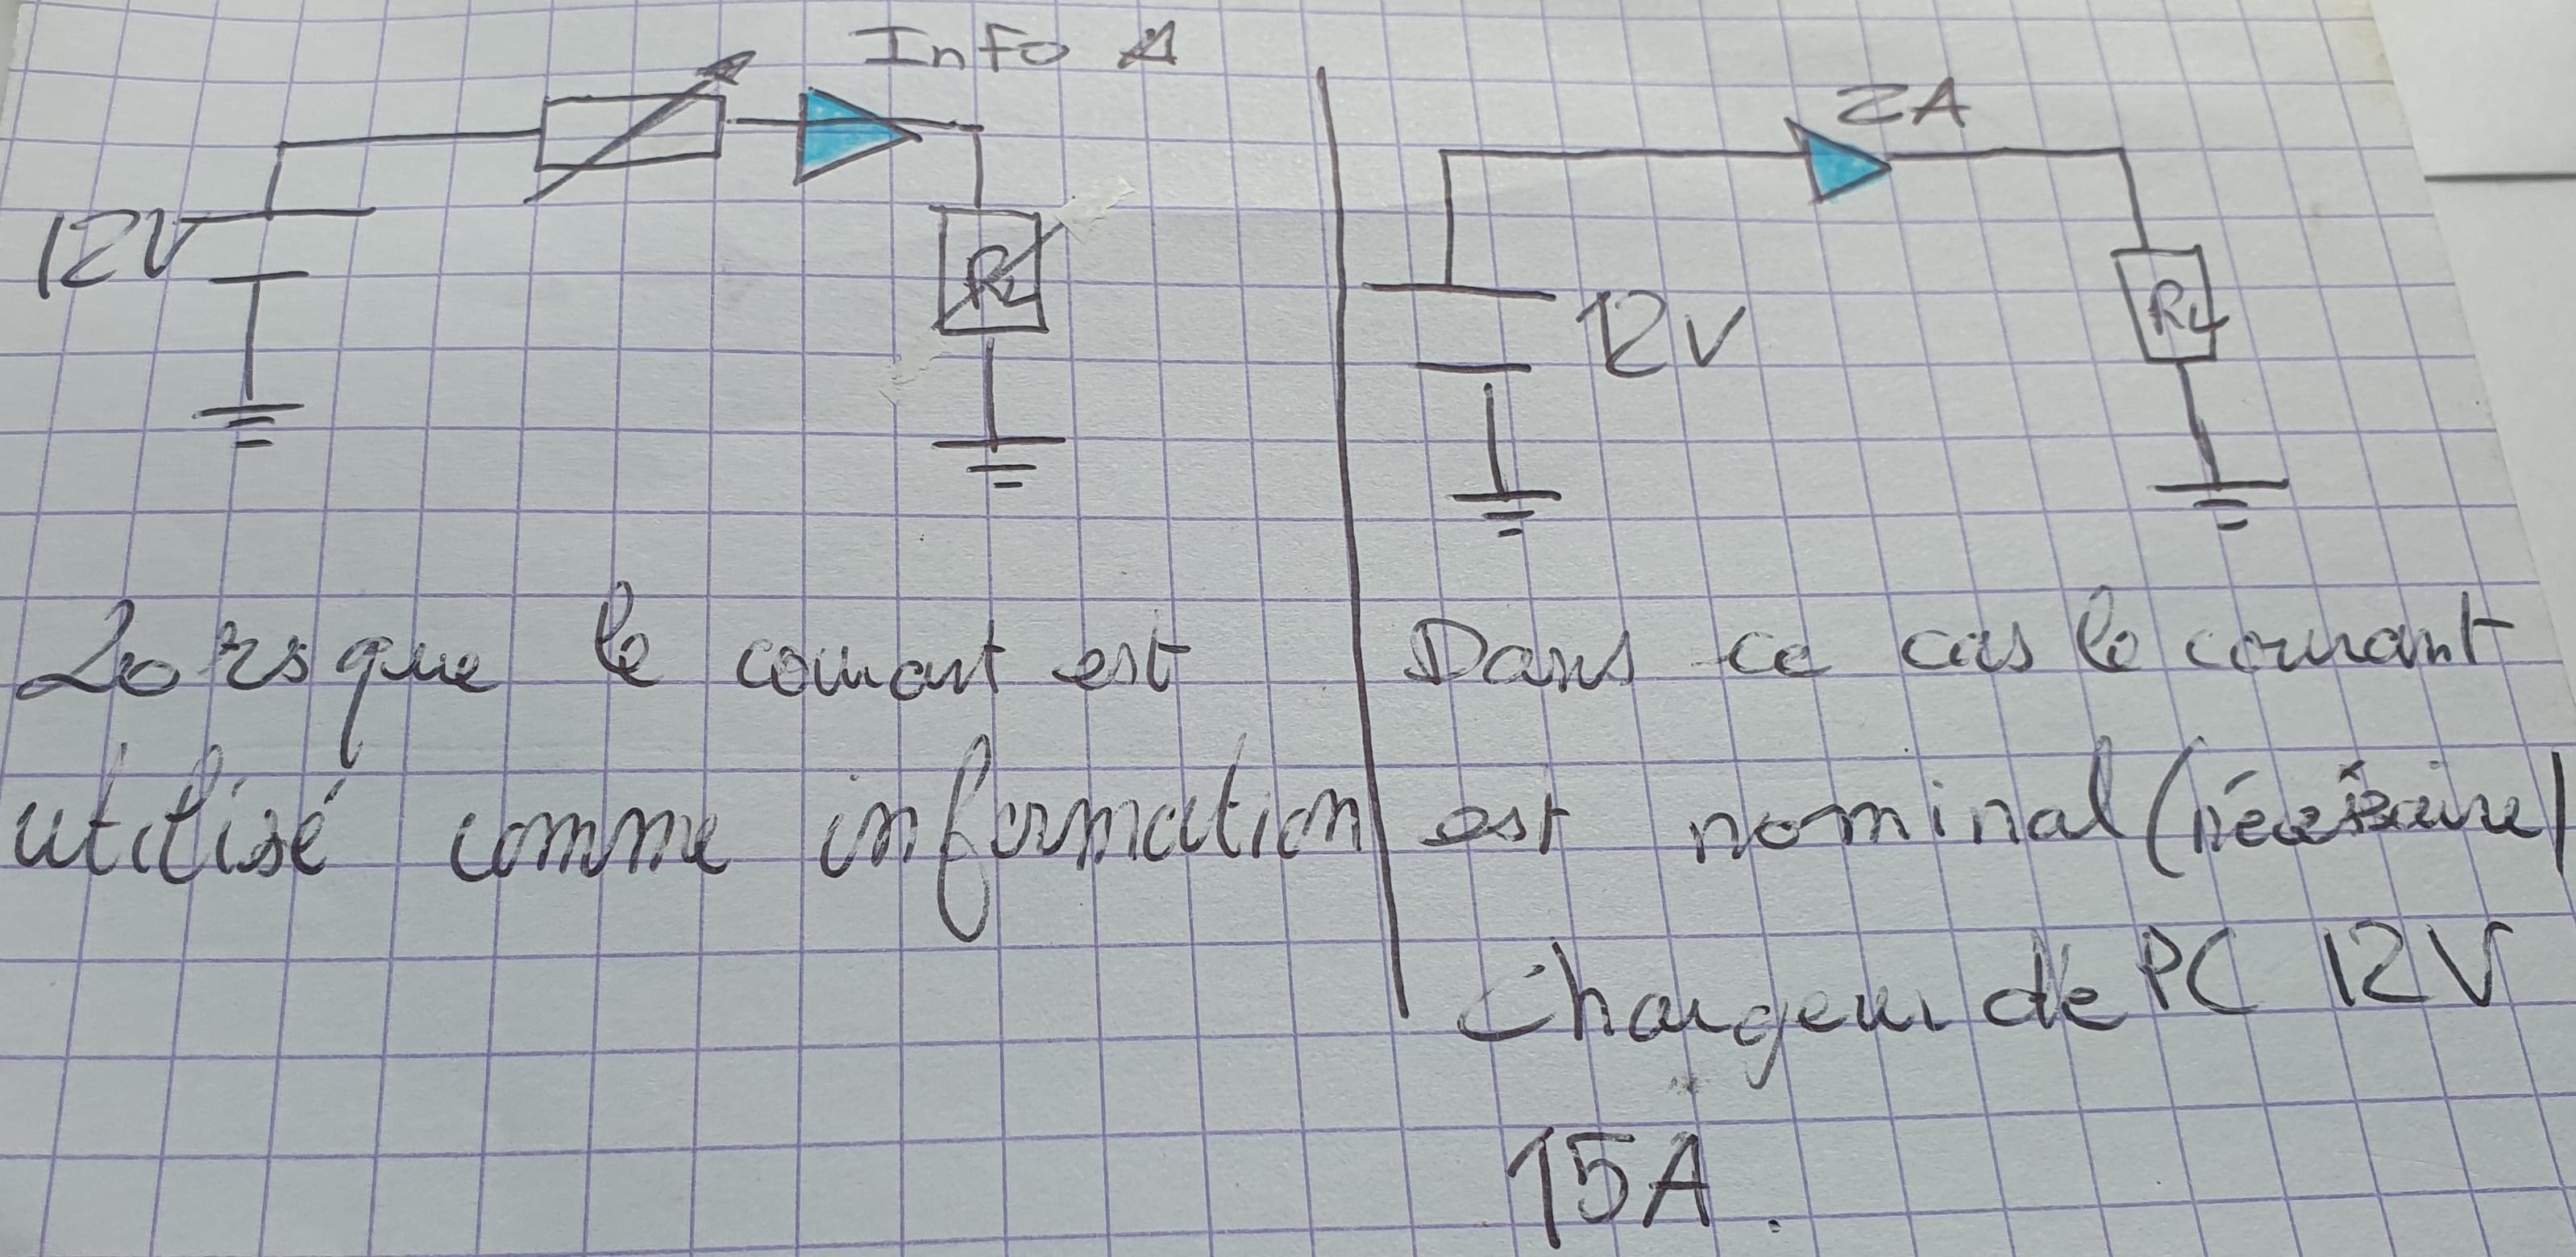 Info A
12V
RL
Lorsque le courant est
utilisé comme information
2A
12V
RL
Dans ce cas le courant
est nominal (nécessaire)
Chargeur de PC 12V
15A.